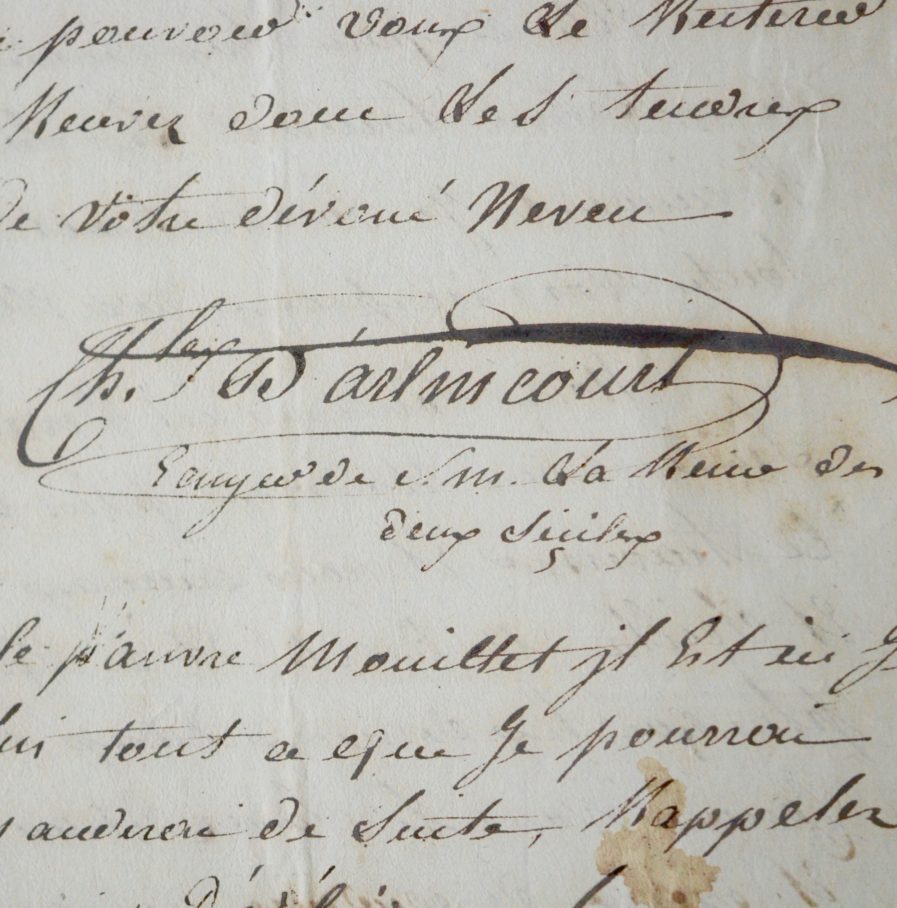 pouvoir vous le Reiterer
Recevez donc Les tendres
de votre dévoué Neveu
Ch.les D'arlincourt
Ecuyer de S. m. La Reine des
deux Siciles
le pauvre Mouillet jl Est ici Je
lui tout ce que Je pourrai
manderai de Suite, Rappelez